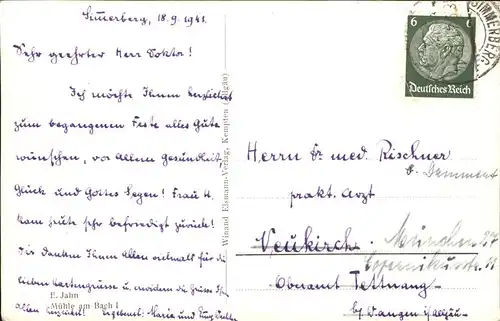 Simmerberg, 18.9.1941.
Sehr geehrter Herr Doktor!
Ich möchte Ihnen herzlichst
zum begangenen Feste alles Gute
wünschen, vor Allem Gesundheit,
Glück und Gottes Segen! Frau H.
kam heute sehr befriedigt zurück!
Wir danken Ihnen Allen erstmals für die
lieben Kartengrüsse u. erwidern die
Allen herzlichst! Ergebenst: Maria und
E. Jahn
Mühle am Bach I
Winand Eismann-Verlag, Kempten (Allgäu)
6
Deutsches Reich
SIMMERBERG
Herrn Dr med. Rischner
b. Demment
prakt. Arzt
Neukirch. München 27
Oberamt Tettnang
b/Wangen i/Allgäu